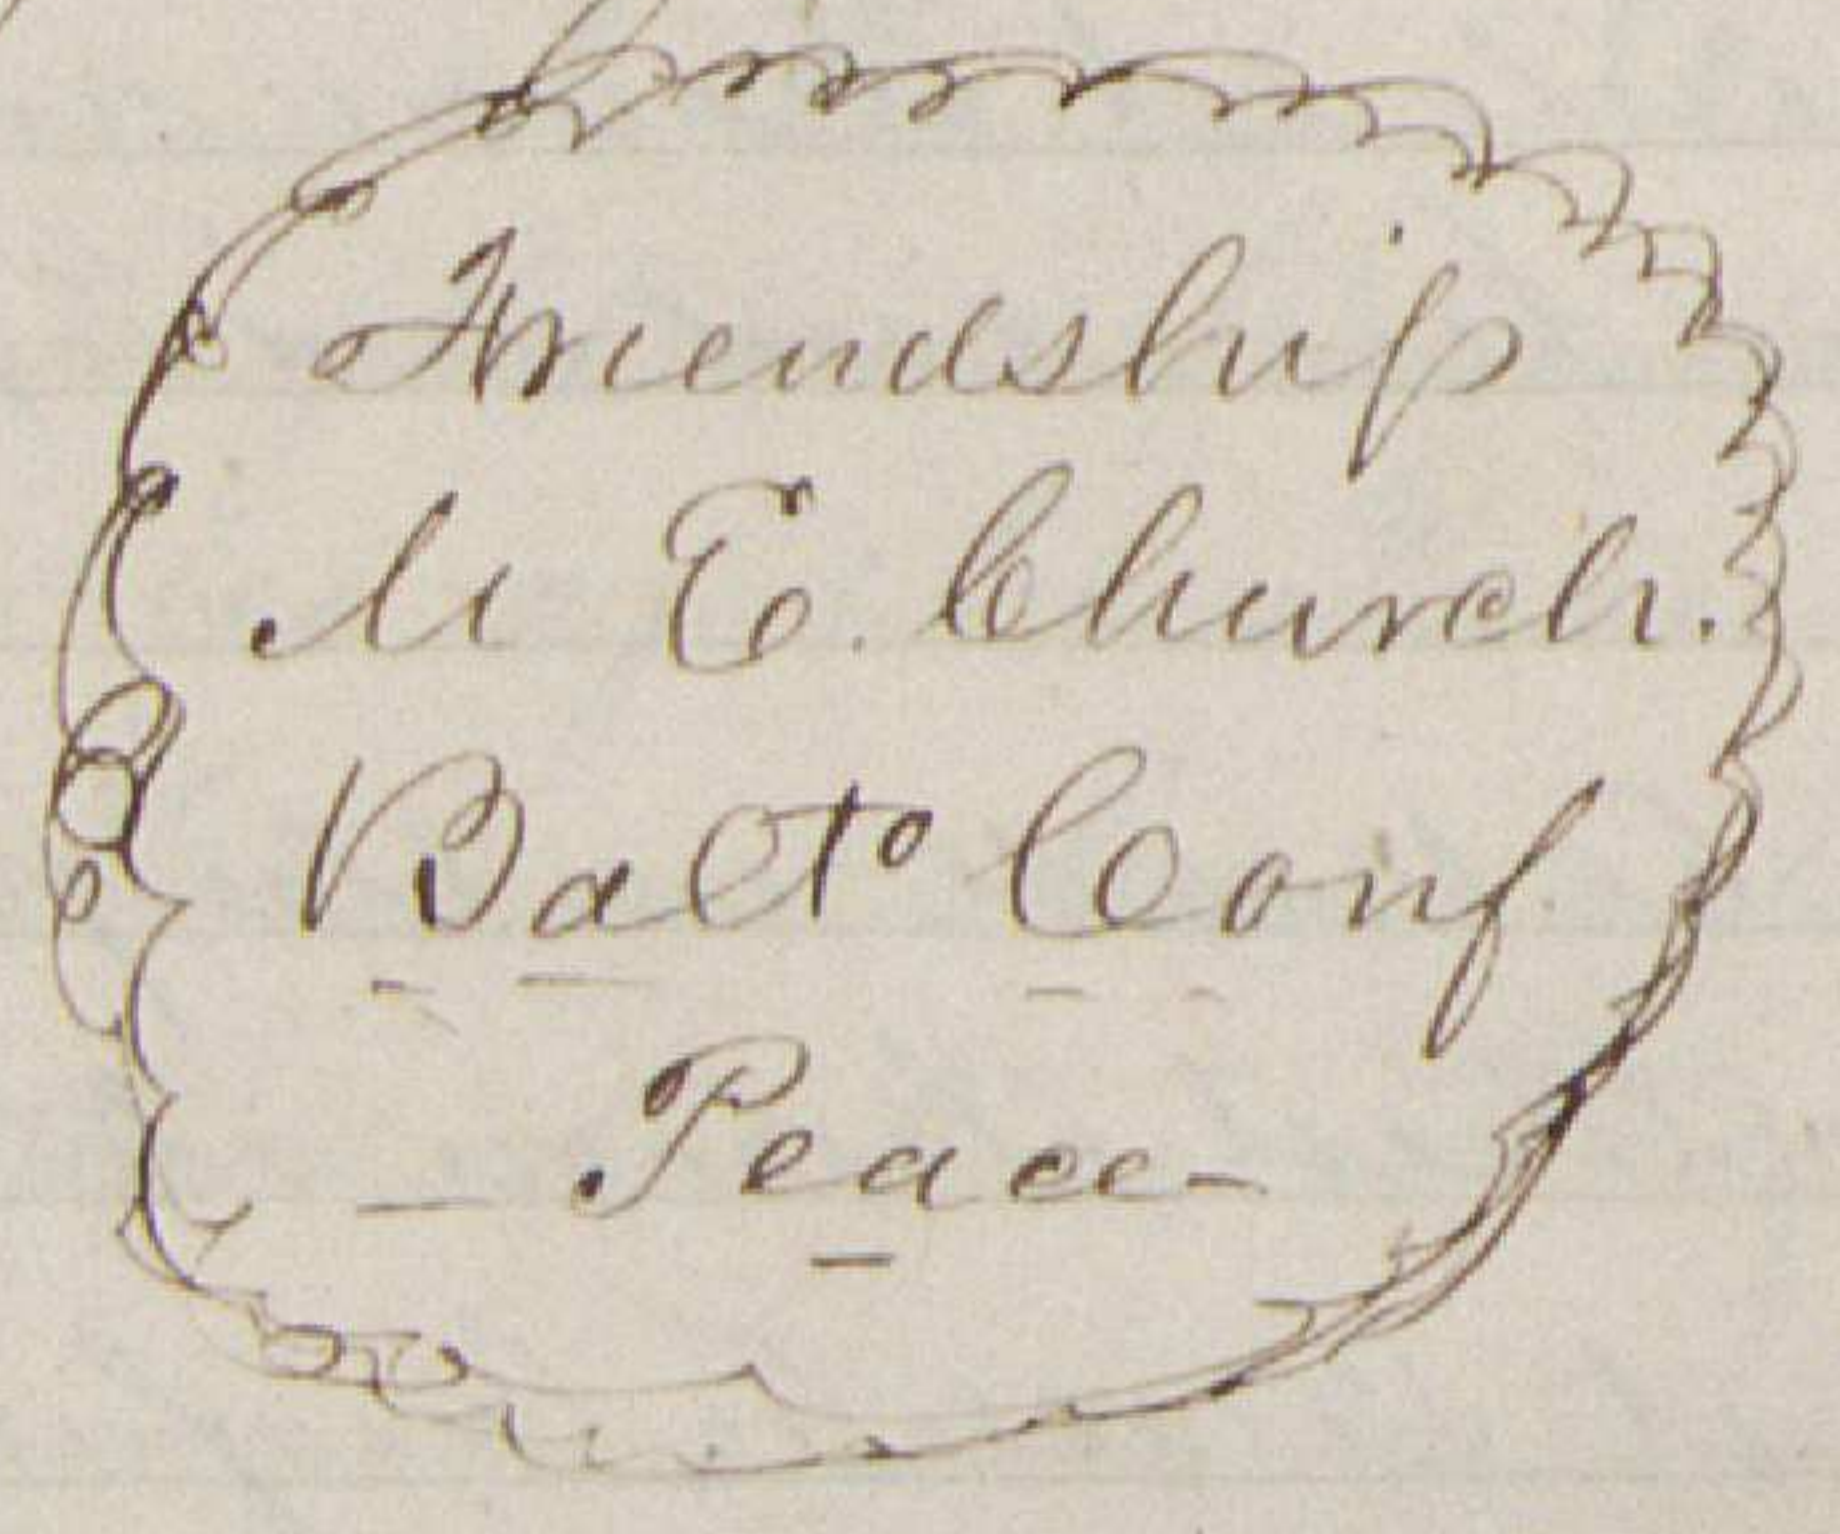 Friendship
M E. Church.
Balto Conf
— Peace —